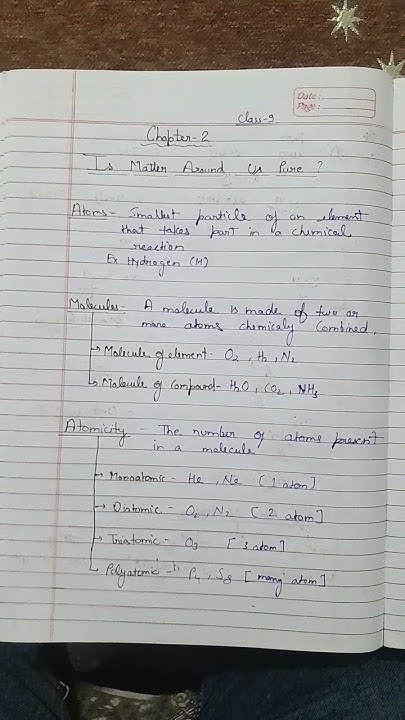 Date :
Page :
Class-9
Chapter-2
Is Matter Around Us Pure ?
Atoms - Smallest particle of an element
that takes part in a chemical
reaction
Ex Hydrogen (H)
Molecules - A molecule is made of two or
more atoms chemicaly combined.
→ Molecule of element - O2, H2, N2
→ Molecule of compound - H2O, CO2, NH3
Atomicity - The number of atoms present
in a molecule
→ Monoatomic - He, Ne [1 atom]
→ Diatomic - O2, N2 [2 atom]
→ Triatomic - O3 [3 atom]
Polyatomic - P4, S8 [many atom]